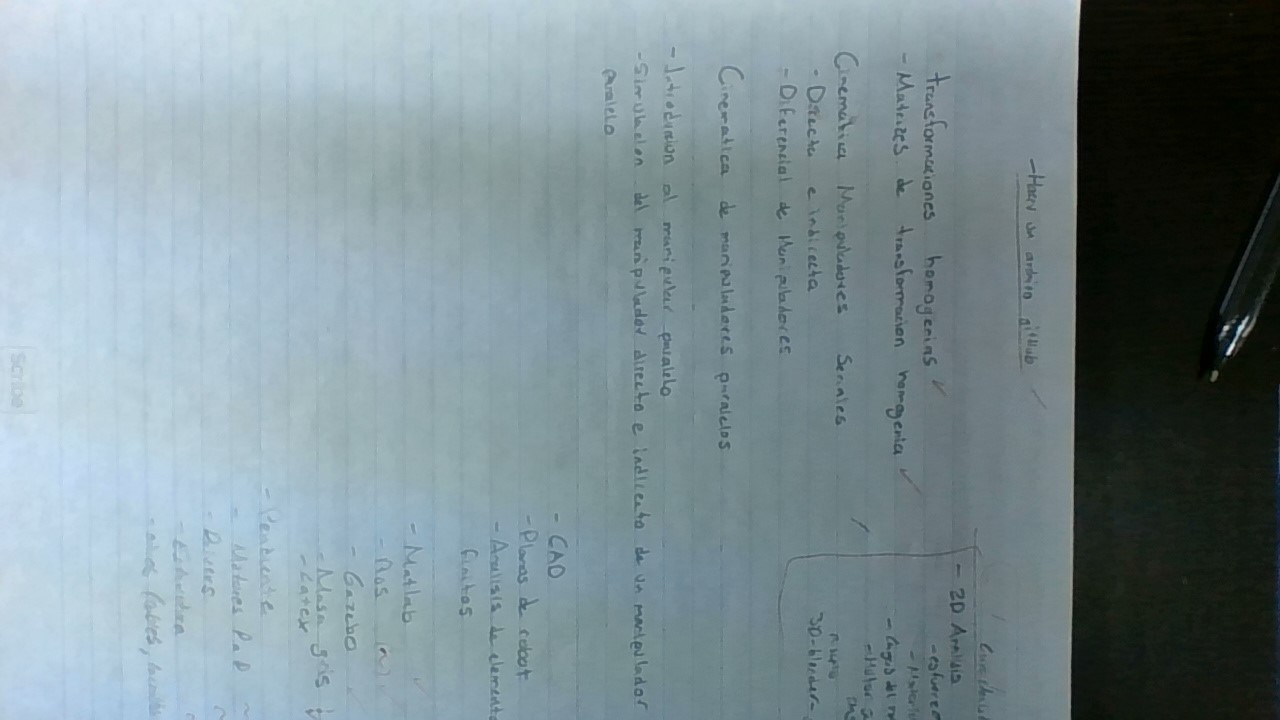 - Hacer un archivo github
transformaciones homogenias
- Matrizes de transformacion homogenia
Cinematica Manipuladores Seriales
- Directa e indirecta
- Diferencial de Manipuladores
Cinematica de manipuladores paralelos
- Introduccion al manipular paralelo
- Simulacion del manipulador directo e indirecto de un manipulador
paralelo
- 2D Analisis
- esfuerzo
- Motor
3D-blender
- CAD
- Planos de robot
- Analisis de elemento
finitos
- Matlab
- Ros
- Gazebo
- Masa gris
- Latex
- Pendiente
- Motores PaP
- Drivers
- Estructura
Scribe